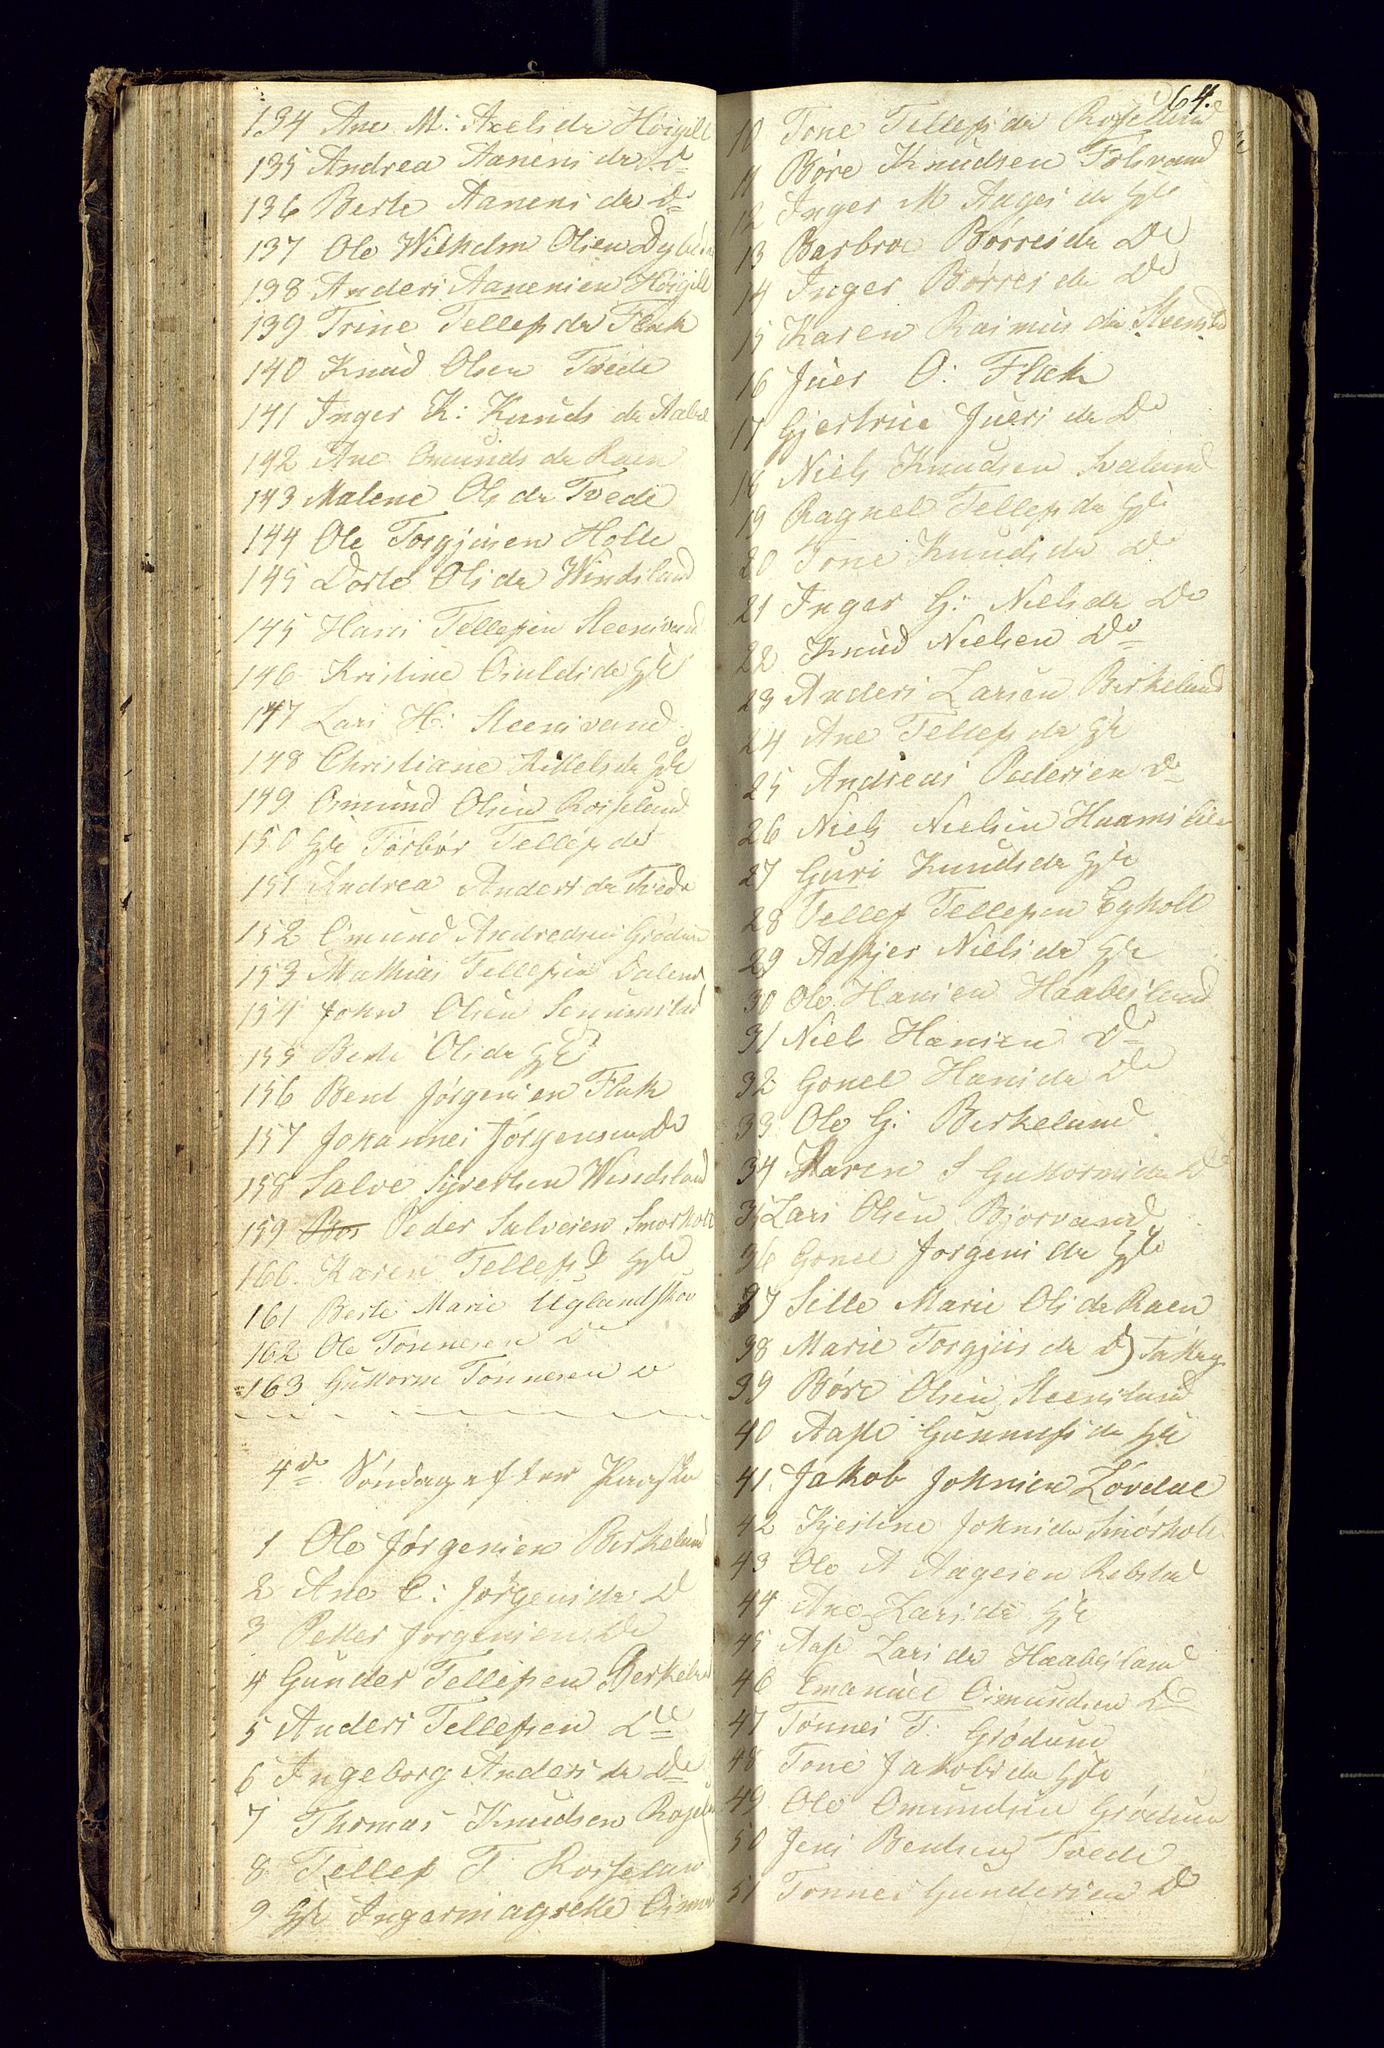 134 Ane M: Axelsda Höigilt
135 Andrea Aanensda Do
136 Berte Aanensda Do
137 Ole Wilhelm Olsen
138 Anders Aanensen Höigilt
139 Trine Tellefsda Flak
140 Knud Olsen Tvede
141 Inger K: Knuds da
142 Ane Omunds da Raen
143 Malene Ols da Tvede
144 Ole Torgjusen Holte
145 Dorte Olsda Windsland
145 Hans Tellefsen Steensvand
146 Kristine da Hst
147 Lars H: Steensvand
148 Christiane Kittelsda Hst
149 Omund Olsen Rosseland
150 Hst Torbør Tellefsda
151 Andrea Andersda Tvede
152 Omund Andreasen Grødum
153 Mathias Tellefsen
154 John Olsen Senumstad
155 Berte Olsda Hst
156 Bent Jørgensen Flak
157 Johannes Jørgensen Do
158 Salve Syvertsen Windsland
159 Peder Salvesen Smorholt
160 Karen Tellefsd Hst
161 Berte Marie Uglandsskov
162 Ole Tønnesen Do
163 Guttorm Tønnesen Do
4de Søndag efter Paaske
1 Ole Jørgensen Birkeland
2 Ane C: Jørgensda Do
3 Petter Jørgensen Do
4 Gunder Tellefsen Berkeland
5 Anders Tellefsen Do
6 Ingeborg Andersda Do
7 Thomas Knudsen
8 Tellef T Rosseland
9 Hst
64.
10 Tone Tellefsda Rosseland
11 Børe Knudsen
12 Inger M Aagesda Hst
13 Barbroe Børresda Do
14 Inger Børresda Do
15 Karen Rasmusda
16 Juer O: Flak
17 Gjertrue Juersda Do
18 Niels Knudsen Svaland
19 Ragnel Tellefsda Hst
20 Tone Knudsda Do
21 Inger G: Nielsda Do
22 Knud Nielsen Do
23 Anders Larsen Birkeland
24 Ane Tellefsda Hst
25 Andreas Pedersen Do
26 Niels Nielsen
27 Guri Knudsda Hst
28 Tellef Tellefsen Egholt
29 Adsjer Nielsda Hst
30 Ole Hansen Haabesland
31 Niels Hansen Do
32 Gonel Hansda Do
33 Ole G: Birkeland
34 Maren S Guttormsda Do
35 Lars Olsen Bjorvand
36 Gonel Jørgensda Hst
37 Sille Marie Olsda Raen
38 Marie Torgjusda Do
39 Børe Olsen Steensland
40 Aasse Gunnufsda Hst
41 Jakob Johnsen Lövdal
42 Kjestine Johnsda Smörholt
43 Ole A Aagesen Rebstad
44 Ane Larsda Hst
45 Aase Larsda Haabesland
46 Emanuel Osmundsen Do
47 Tønnes T: Grødum
48 Tone Jakobsda Hst
49 Ole Omundsen Grödum
50 Jens Bendsen Tvede
51 Tønnes Gundersen Do